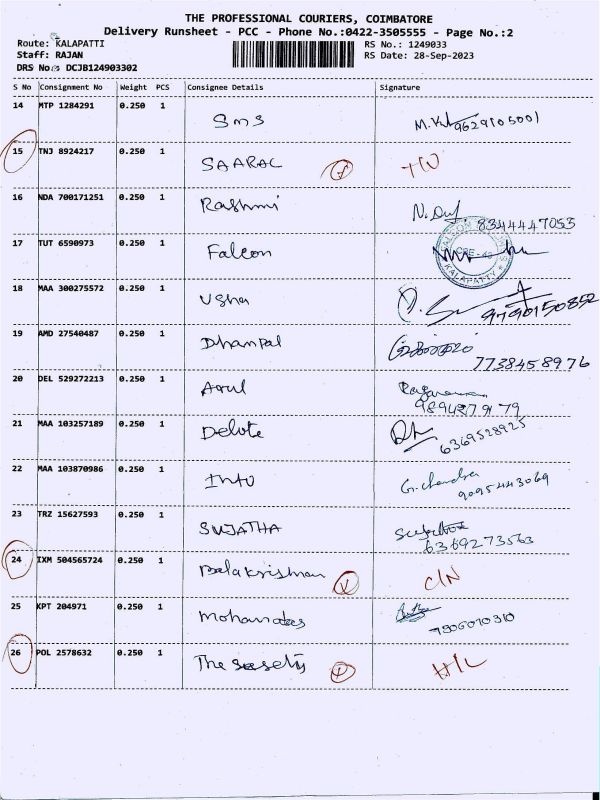 THE PROFESSIONAL COURIERS, COIMBATORE
Delivery Runsheet - PCC - Phone No.:0422-3505555 - Page No.:2
Route: KALAPATTI
RS No.: 1249033
Staff: RAJAN
RS Date: 28-Sep-2023
DRS No.: DCJB124903302
S No Consignment No Weight PCS Consignee Details Signature
14 MTP 1284291 0.250 1 SMS 9629105001
15 TNJ 8924217 0.250 1 SAARAL
16 NDA 700171251 0.250 1 Rashmi 8344447053
17 TUT 6590973 0.250 1 Falcon KALAPATTY
18 MAA 300275572 0.250 1 Usha 9790150852
19 AMD 27540487 0.250 1 Dhanpal
7738458976
20 DEL 529272213 0.250 1 Arul
21 MAA 103257189 0.250 1 6369528925
22 MAA 103870986 0.250 1 G. Chandra
9095443069
23 TRZ 15627593 0.250 1 SUJATHA
6369273563
24 IXM 504565724 0.250 1 Balakrishnan C/N
25 KPT 204971 0.250 1 Mohandas
7906070310
26 POL 2578632 0.250 1 The H/L